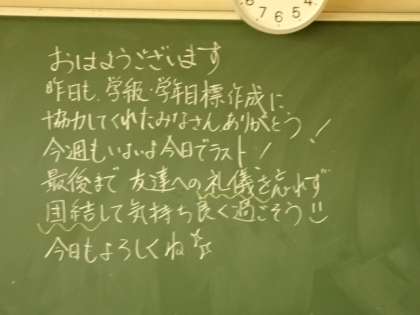 7 6 5 4
おはようございます
昨日も、学級・学年目標作成に
協力してくれたみなさんありがとう!
今週もいよいよ今日でラスト!
最後まで 友達への礼儀を忘れず
団結して気持ち良く過ごそう
今日もよろしくね☆